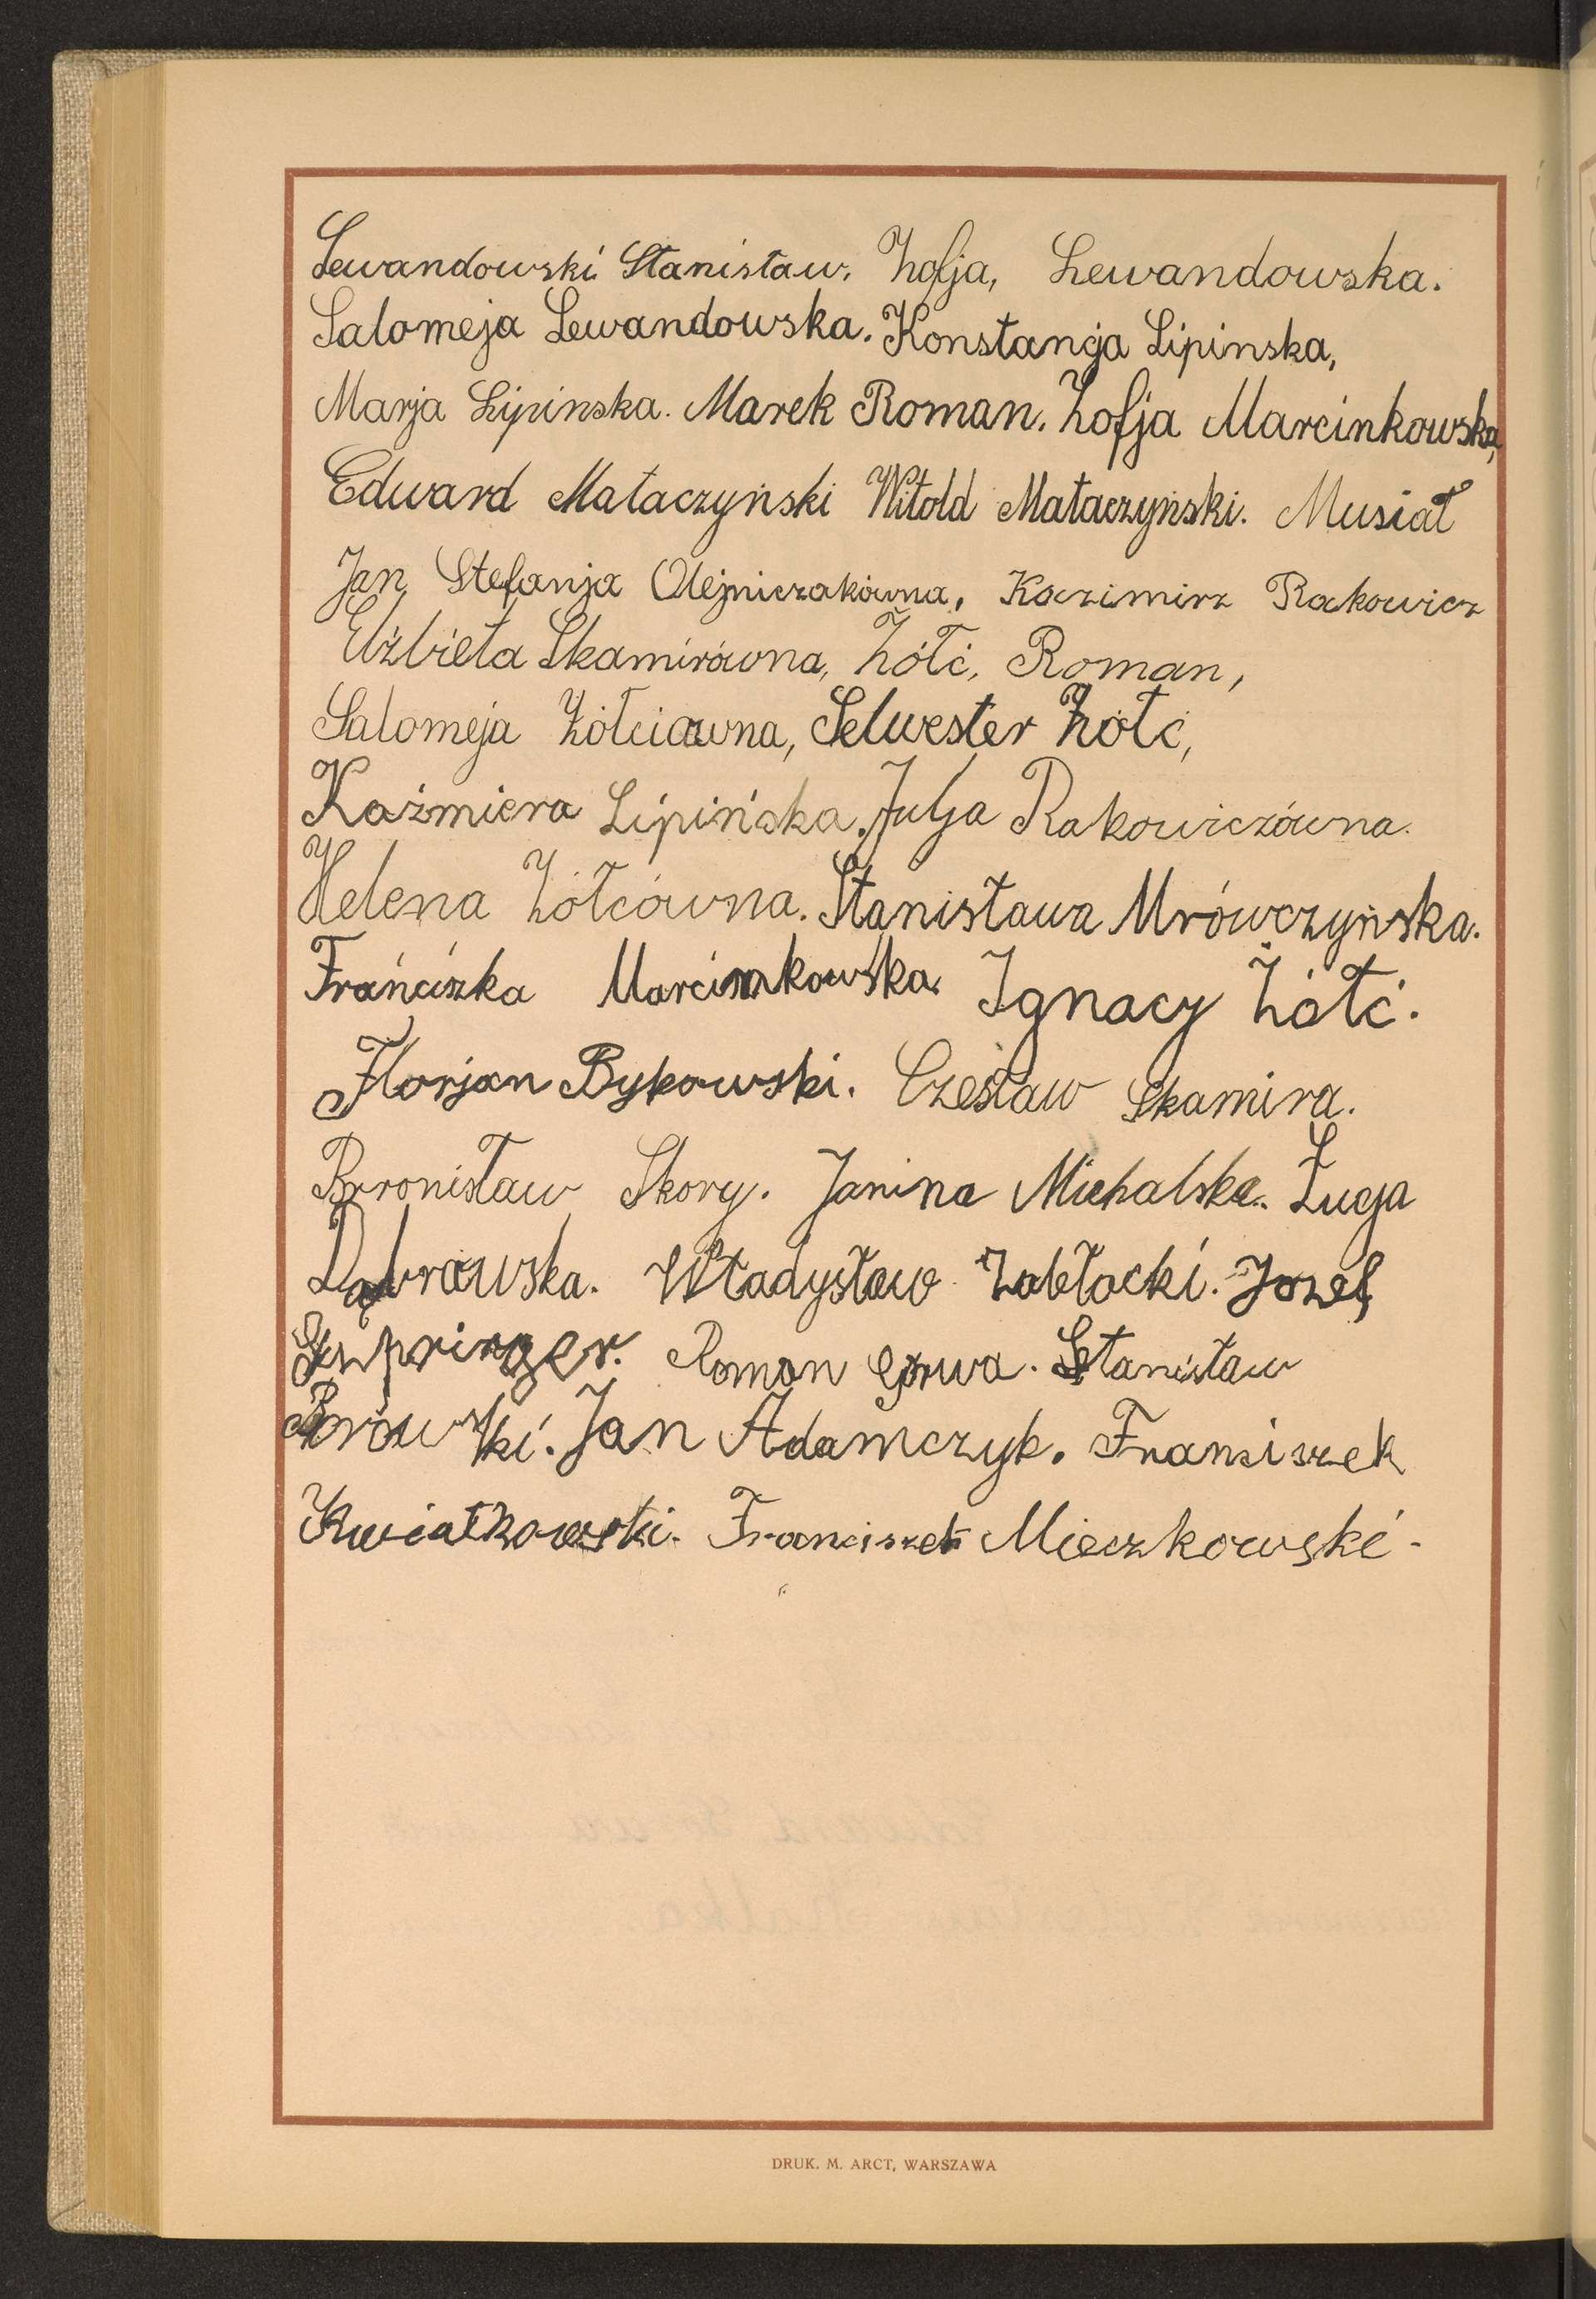 Lewandowski Stanisław. Zofja, Lewandowska.
Salomeja Lewandowska. Konstancja Lipinska,
Marja Lipinska. Marek Roman. Zofja Marcinkowska,
Edward Mataczyński Witold Mataczyński. Musiał
Jan Stefanja Olejniczakówna, Kazimirz Rakowicz
Elżbieta Skamirówna, Żółć, Roman,
Salomeja Żółciowna, Selwester Żółć,
Kaźmiera Lipińska. Julja Rakowiczówna.
Helena Żółcówna. Stanisława Mrówczyńska.
Frańciszka Marcinkowska. Ignacy Żółć.
Florjan Bykowski. Czesław Skamira.
Bronisław Skory. Janina Michalska. Łucja
Dąbrowska. Władysław Zabłocki. Jozef
Szpringer. Roman Gorwa. Stanisław
Brówski. Jan Adamczyk. Franciszek
Kwiatkowski. Franciszek Mieczkowski.
DRUK. M. ARCT, WARSZAWA